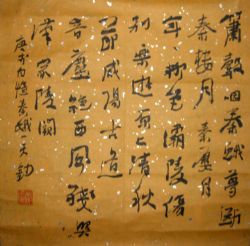 簫聲咽秦娥夢斷
秦樓月秦樓月
年々柳色灞陵傷
別樂遊原上清秋
節咸陽古道
音塵絕西風殘照
漢家陵闕
憶秦娥